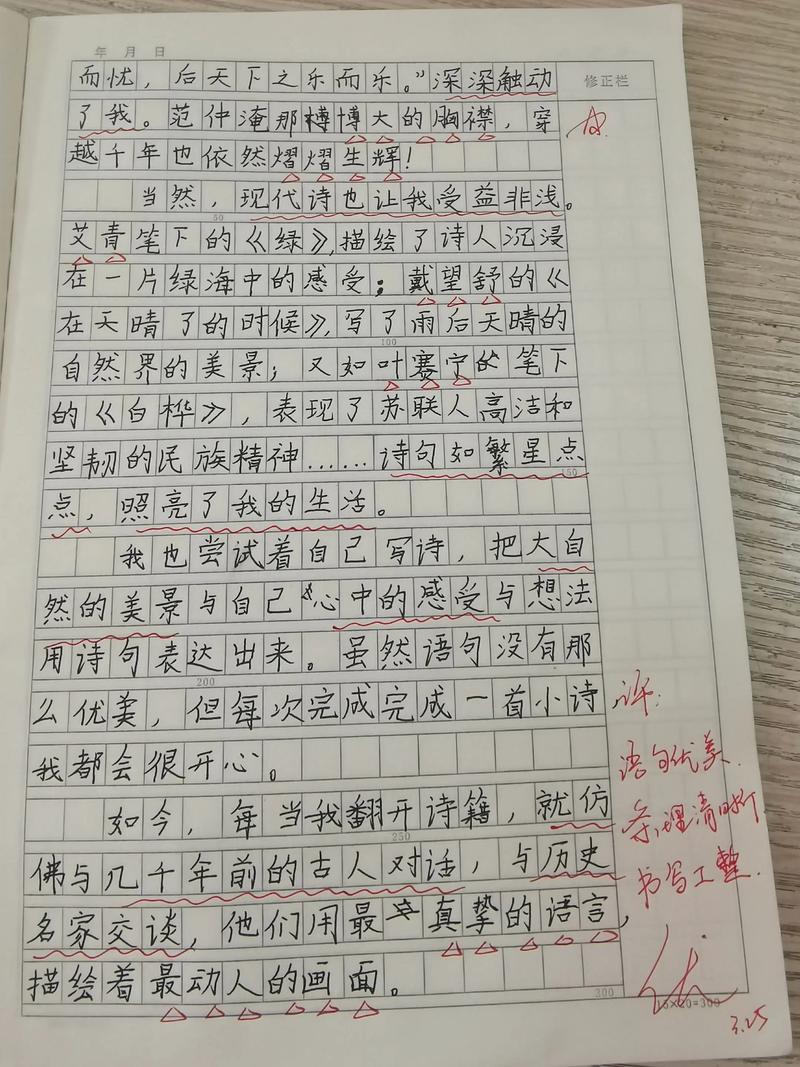 年 月 日
修正栏
而忧，后天下之乐而乐。”深深触动
了我。范仲淹那博大的胸襟，穿
越千年也依然熠熠生辉！
当然，现代诗也让我受益非浅。
50
艾青笔下的《绿》，描绘了诗人沉浸
在一片绿海中的感受；戴望舒的《
在天晴了的时候》，写了雨后天晴的
100
自然界的美景；又如叶赛宁的笔下
的《白桦》，表现了苏联人高洁和
坚韧的民族精神……诗句如繁星点
150
点，照亮了我的生活。
我也尝试着自己写诗，把大自
然的美景与自己心中的感受与想法
用诗句表达出来。虽然语句没有那
200
么优美，但每次完成完成一首小诗
我都会很开心。
如今，每当我翻开诗籍，就仿
250
佛与几千年前的古人对话，与历史
名家交谈，他们用最真挚的语言，
描绘着最动人的画面。
300
15×20=300
评：
语句优美.
条理清晰
书写工整.
优
3.25